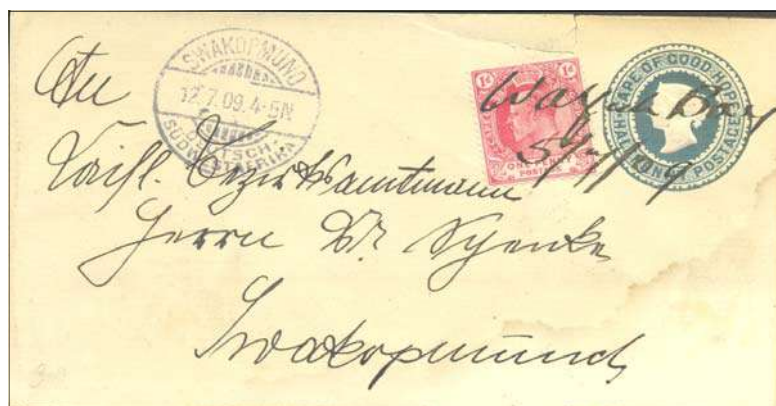 SWAKOPMUND
12.7.09.4-5N
DEUTSCH-
SÜDWESTAFRIKA
1d 1d
ONE PENNY
POSTAGE
CAPE OF GOOD HOPE
HALF PENNY POSTAGE
Walfish Bay
9
An
Kaiserl. Bezirksamtmann
Herrn Dr. Schenke
Swakopmund